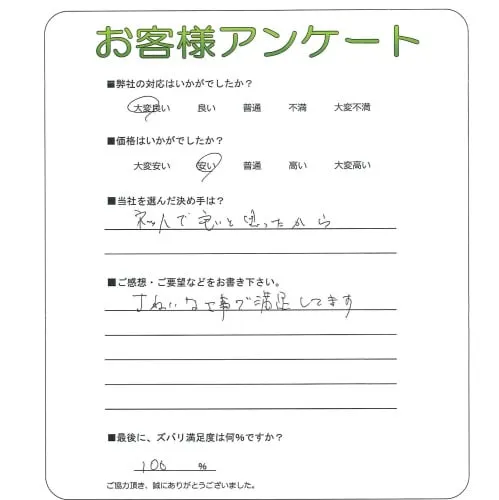 お客様アンケート
■弊社の対応はいかがでしたか？
大変良い 良い 普通 不満 大変不満
■価格はいかがでしたか？
大変安い 安い 普通 高い 大変高い
■当社を選んだ決め手は？
ネットで良いと思ったから
■ご感想・ご要望などをお書き下さい。
きれいな仕事で満足してます
■最後に、ズバリ満足度は何％ですか？
100 ％
ご協力頂き、誠にありがとうございました。